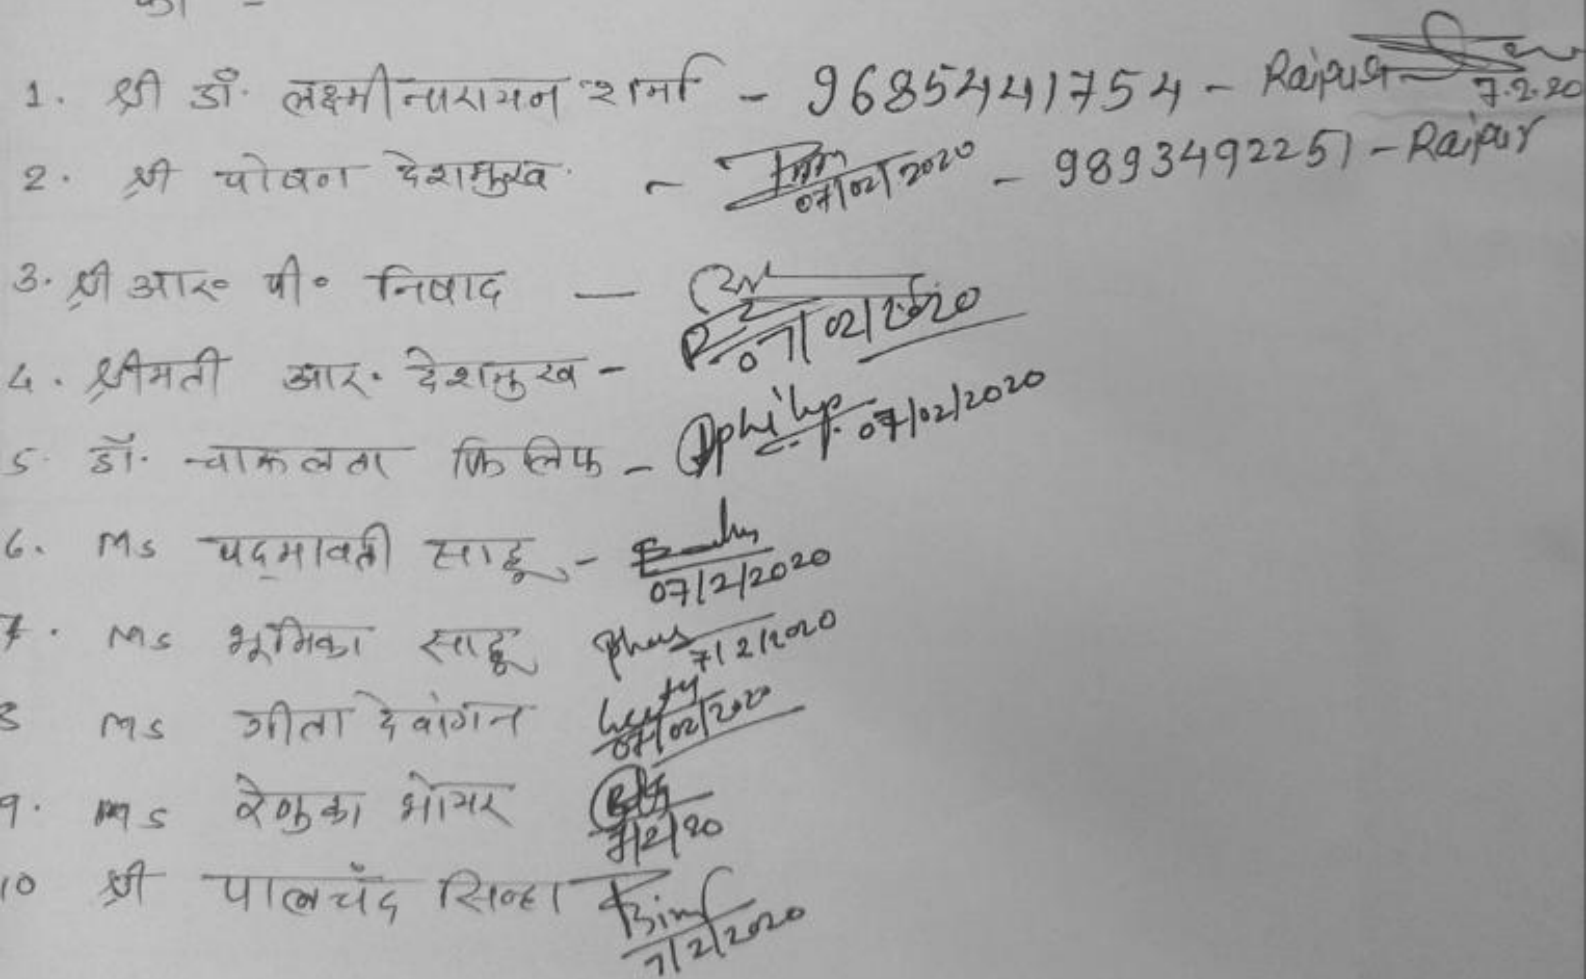 1. श्री डॉ. लक्ष्मीनारायन शर्मा - 9685441754 - Raipur 7.2.20
2. श्री पोषण देशमुख - 07/02/2020 - 9893492251 - Raipur
3. श्री आर० पी० निषाद — 07/02/2020
4. श्रीमती आर. देशमुख -
5. डॉ. चारूलता फिलिफ - philip 07/02/2020
6. Ms पद्मावती साहू - 07/2/2020
7. Ms भूमिका साहू 7/2/2020
8 Ms गीता देवांगन 07/02/2020
9. Ms रेणुका भोयर 7/2/20
10 श्री पालचँद सिन्हा 7/2/2020